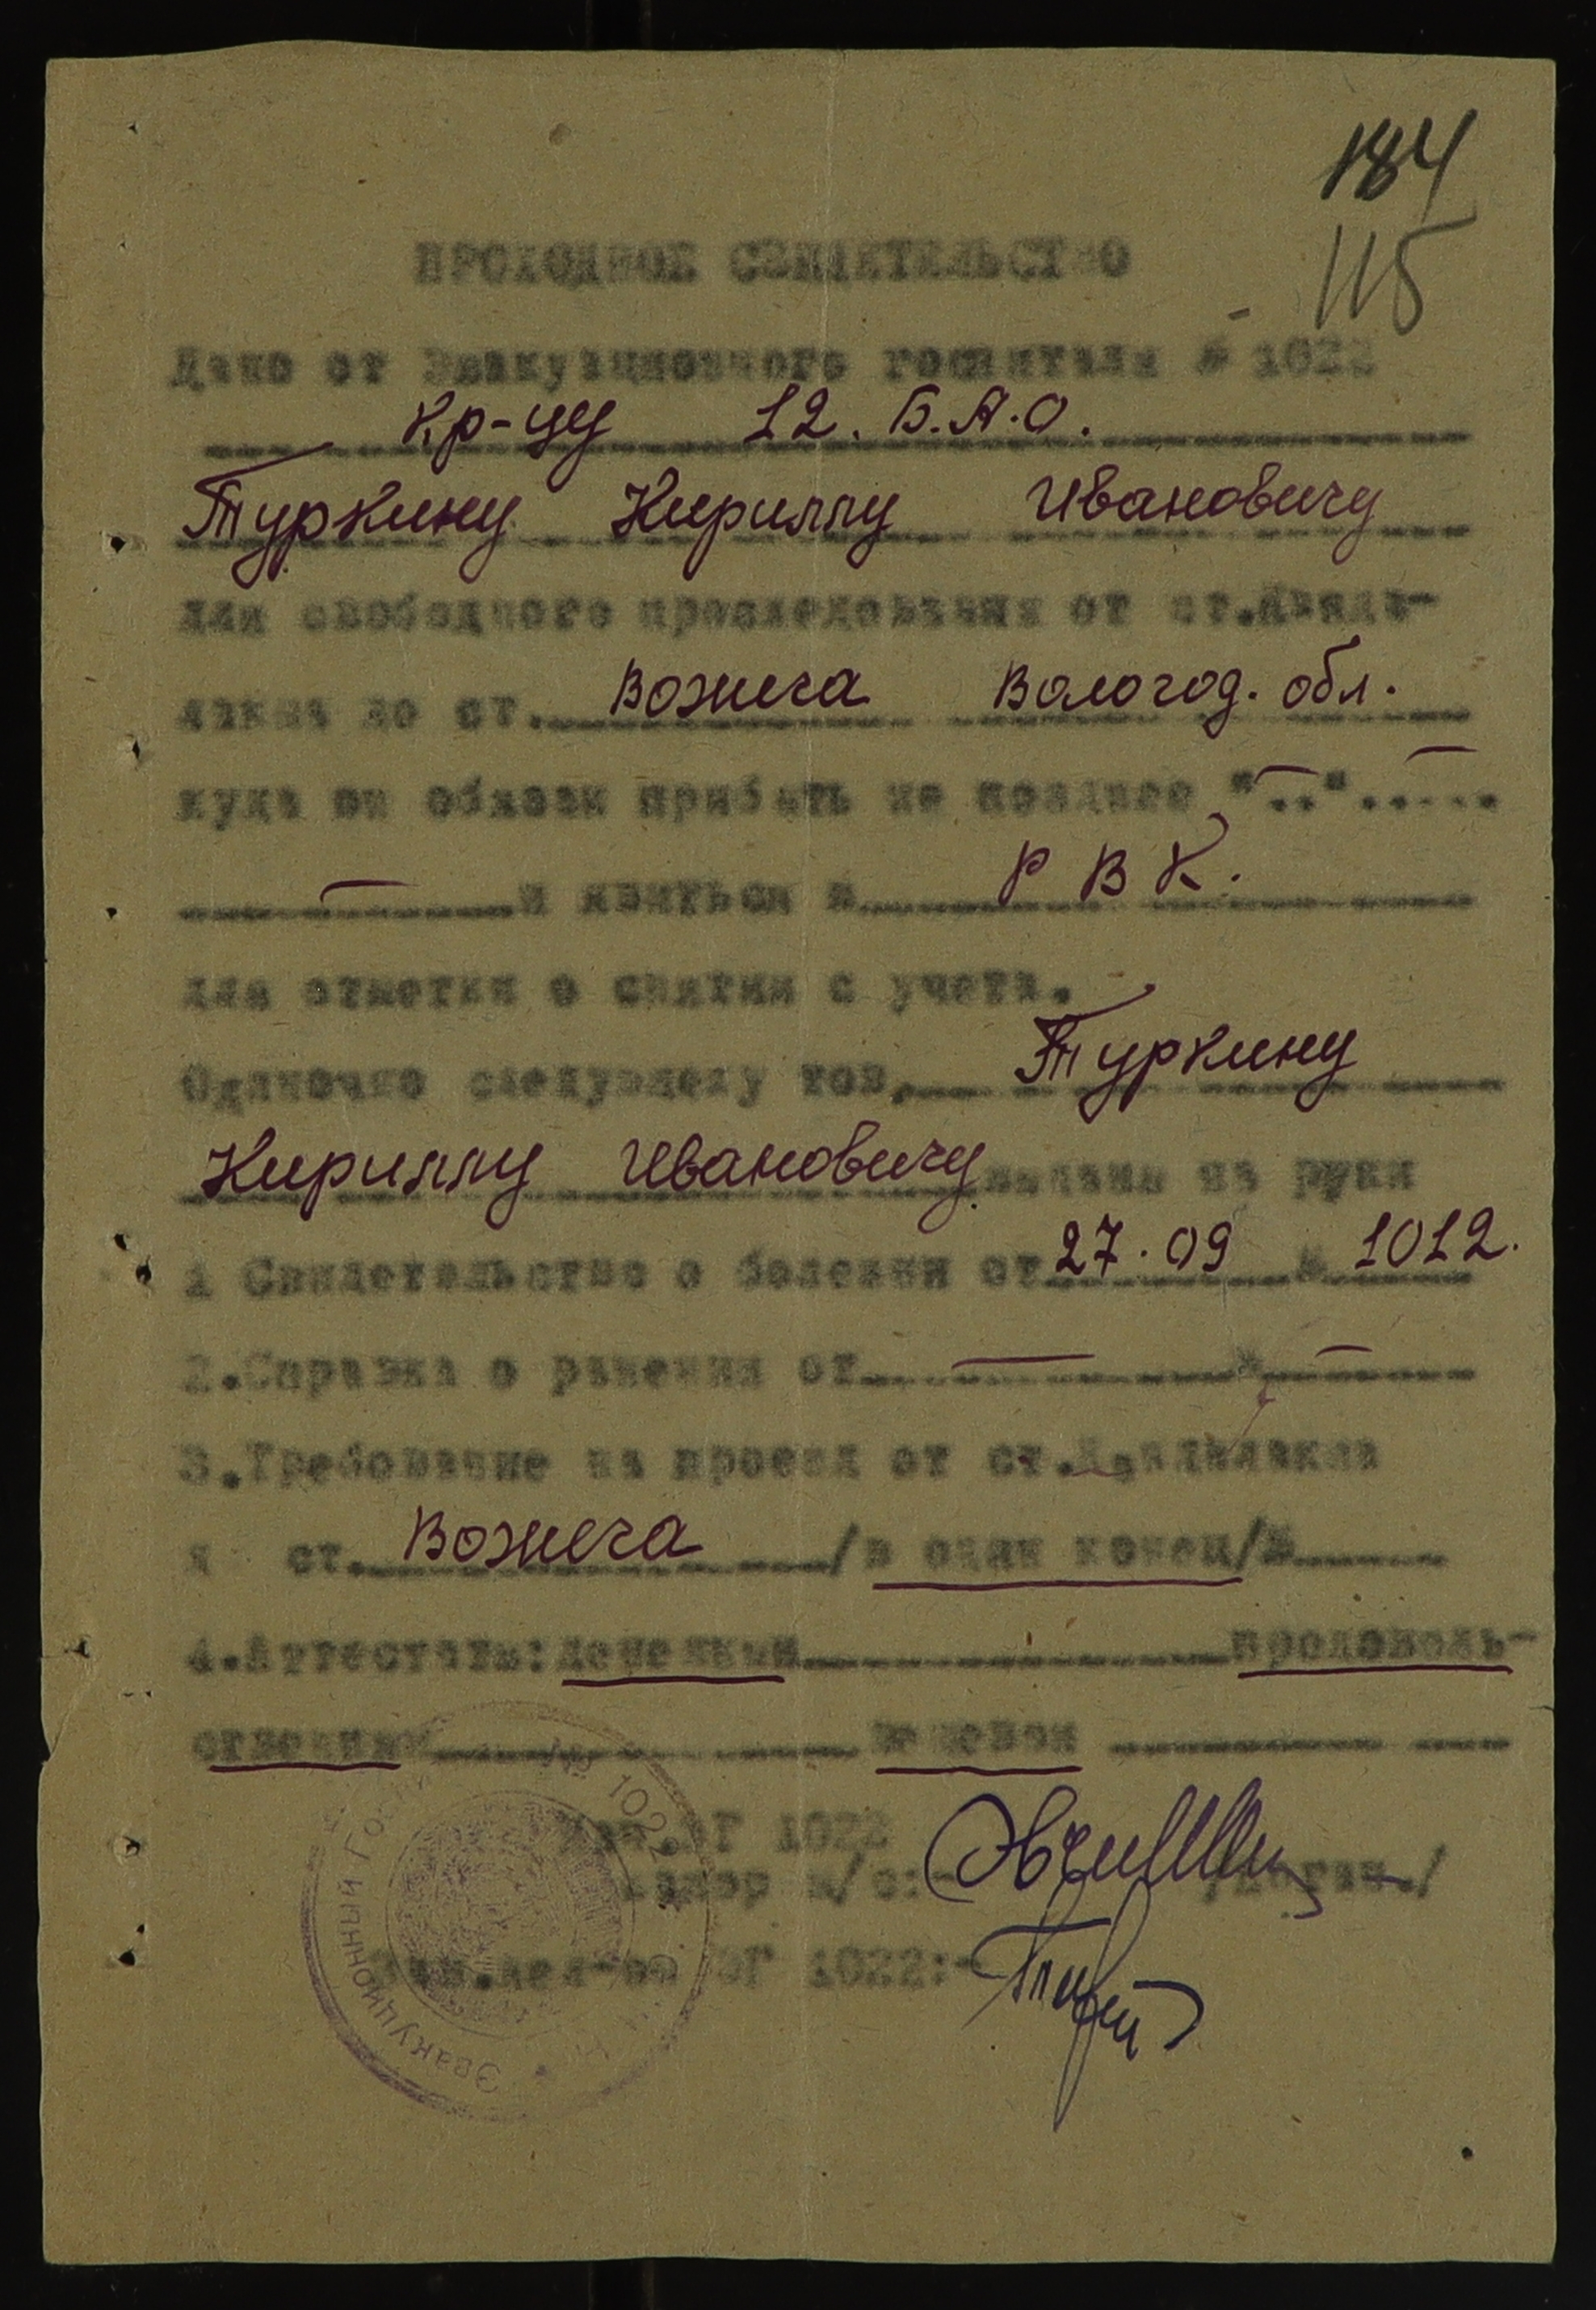 184
115
ПРОХОДНОЕ СВИДЕТЕЛЬСТВО
Дано от Эвакуационного госпиталя № 1022
Кр-цу 12. Б.А.О.
Туркину Кириллу Ивановичу
для свободного проследования от ст.
до ст. Вожега Вологод. обл.
куда он обязан прибыть не позднее "—..".....
— и явиться в Р В К.
для отметки о снятии с учета.
Одиночно следующему тов. Туркину
Кириллу Ивановичу выданы на руки
1 Свидетельство о болезни от 27.09 № 1012.
2.Справка о ранении от — № —
3.Требование на проезд от ст.
к ст. Вожега /в один конец/№
4.Аттестаты: денежный продоволь-
ственный вещевой
Нач.ЭГ 1022
Майор м/с:-
Зав.дел-во ЭГ 1022:-
Эвакуационный Госпиталь № 1022